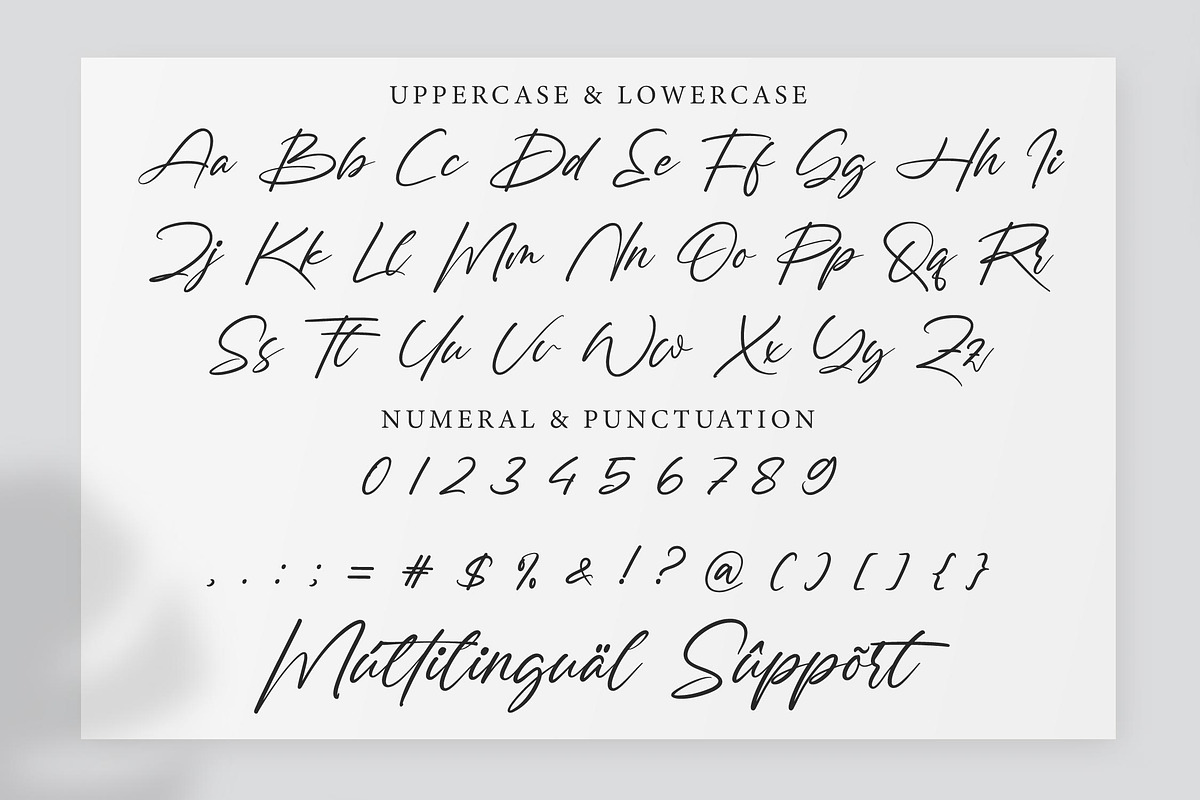 UPPERCASE & LOWERCASE
Aa Bb Cc Dd Ee Ff Gg Hh Ii
Jj Kk Ll Mm Nn Oo Pp Qq Rr
Ss Tt Uu Vv Ww Xx Yy Zz
NUMERAL & PUNCTUATION
0 1 2 3 4 5 6 7 8 9
, . : ; = # $ % & ! ? @ ( ) [ ] { }
Múltilinguäl Sûppõrt